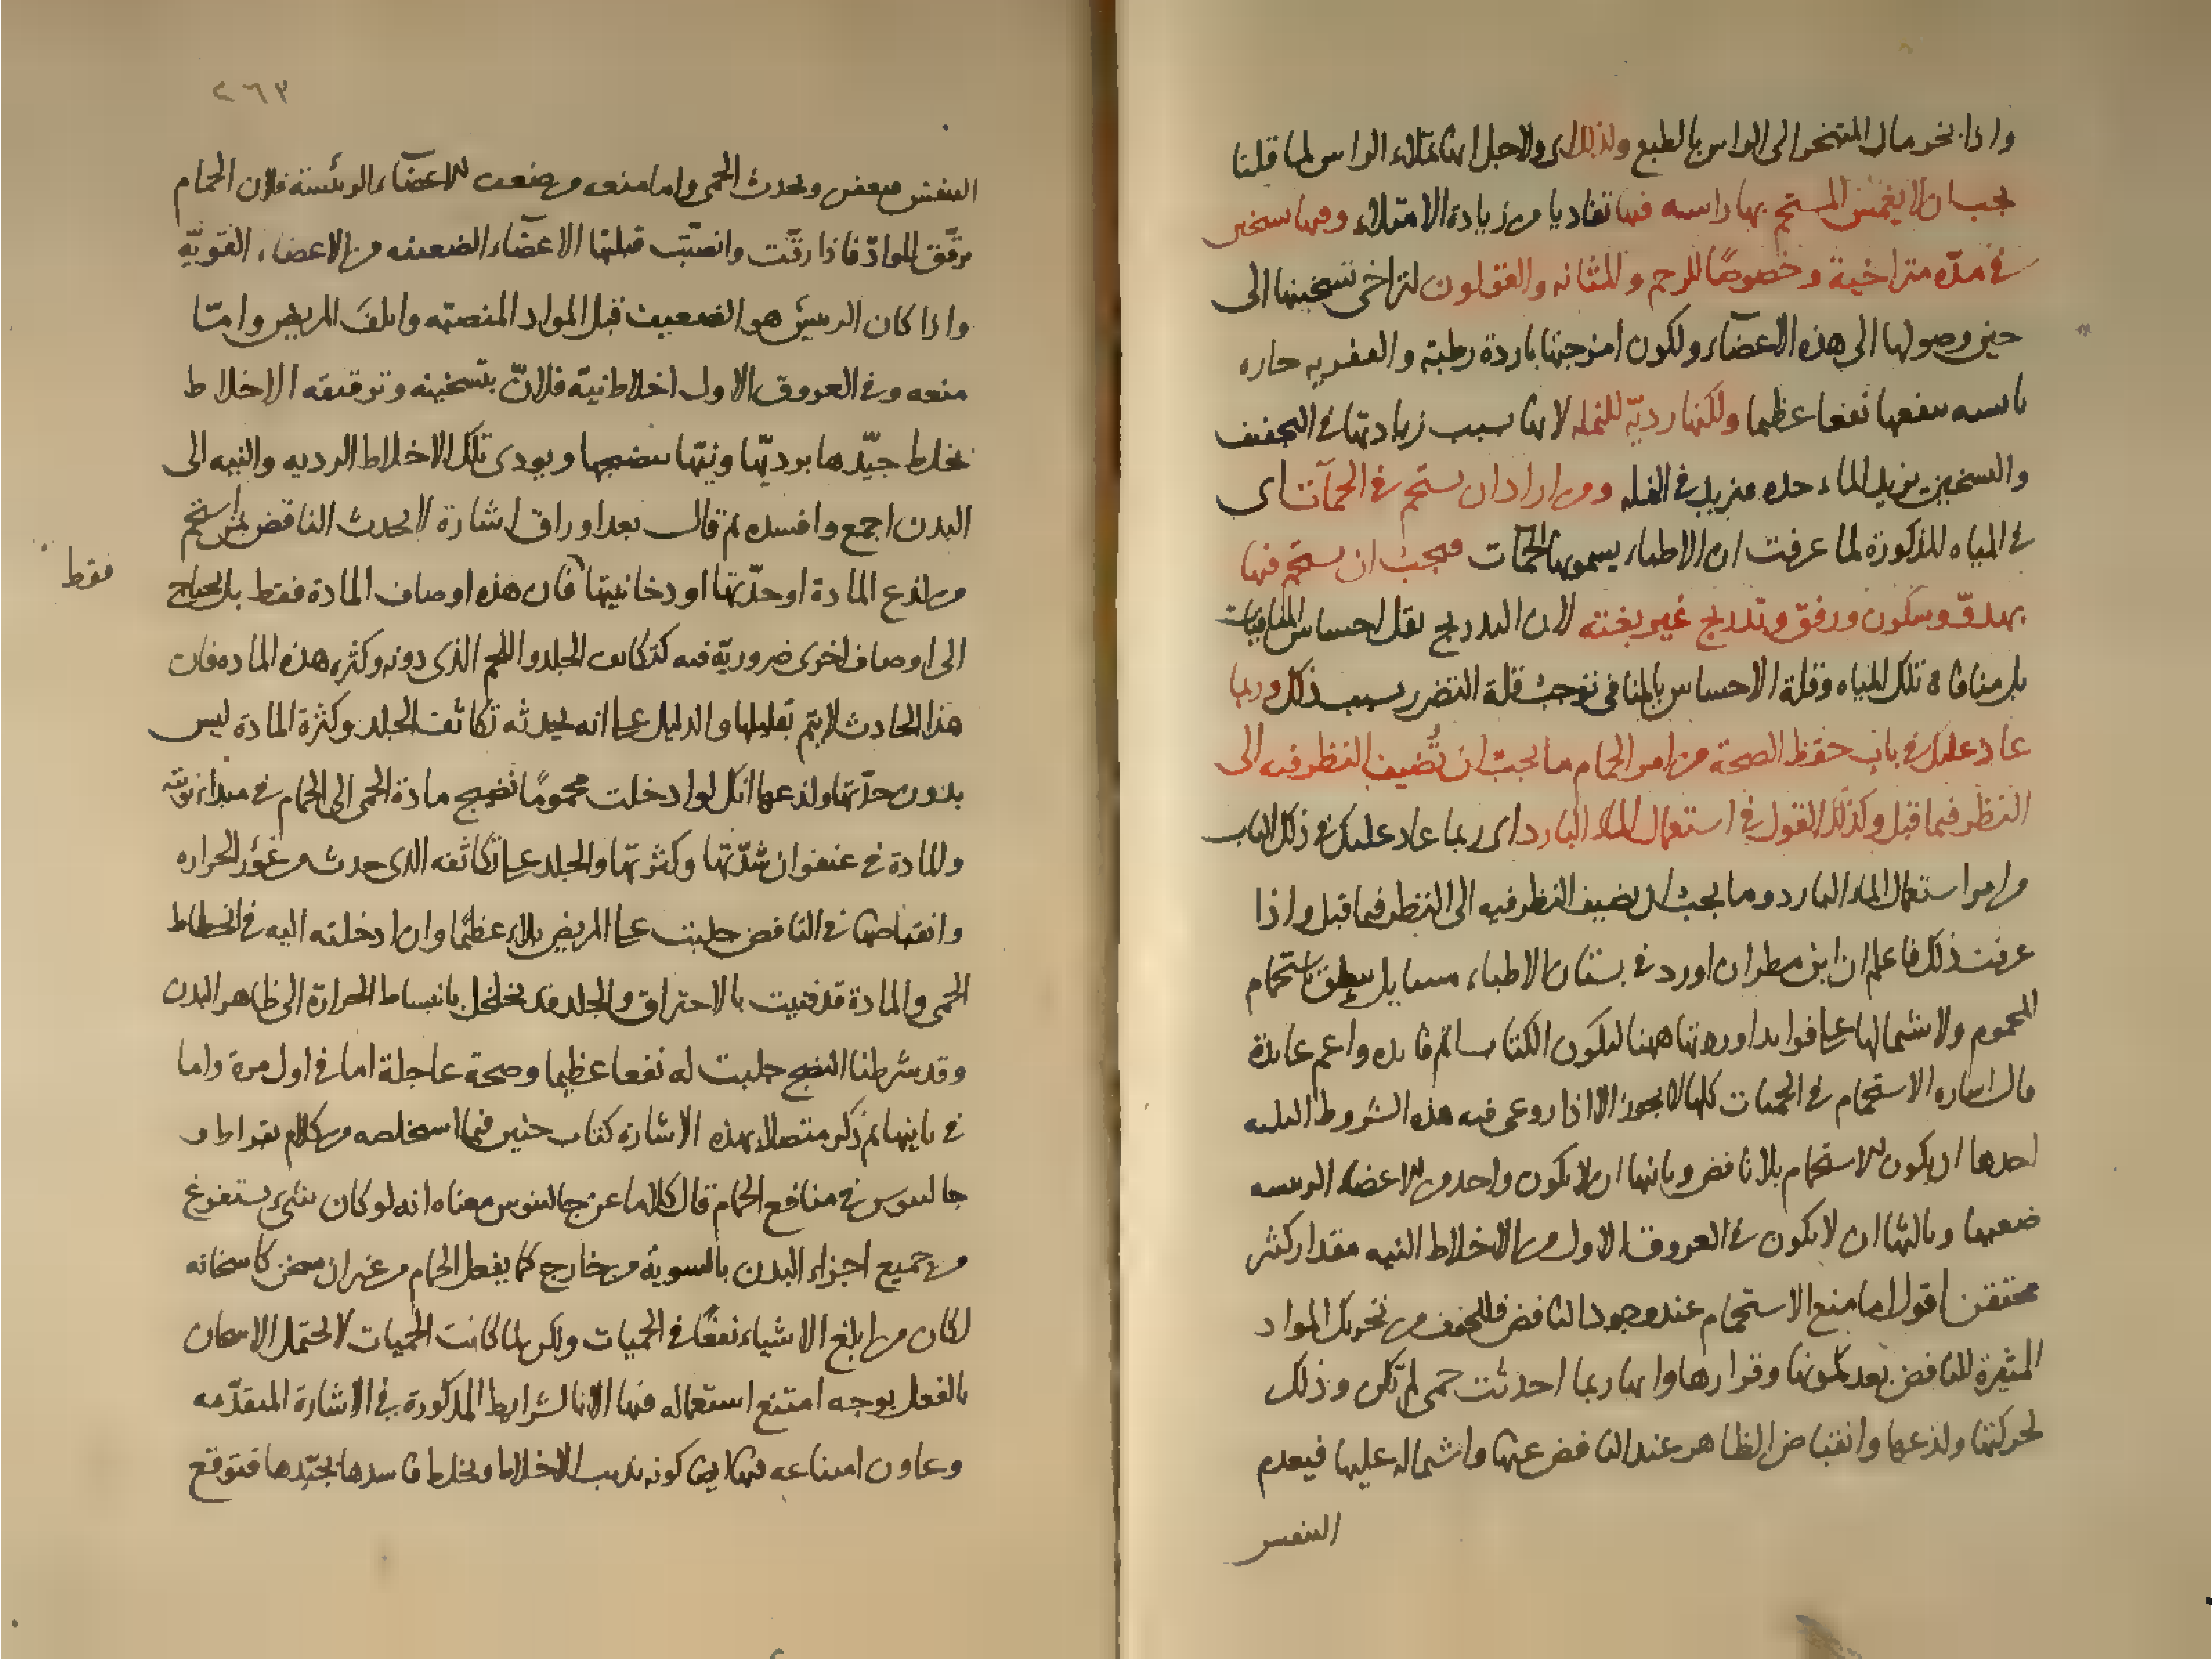 واذا بخر مال المتبخر الى الراس بالطبع ولذلك ولاجل انها تملاء الراس لما قلنا
يجب ان لا يغمس المستحم بها راسه فيها تفاديا من زيادة الامتلاء وفيها تسخين
في مدة متراخية وخصوصًا للرحم والمثانه والقولون لتراخي تسخينها الى
حين وصولها الى هذه الاعضاء ولكون امزجتها باردة رطبة والعفويه حاره
يابسه ينفعها نفعا عظيما ولكنها رديّة للنمله لانها بسبب زيادتها في التجفيف
والتسخين يزيد الماء حده فيزيد في النمله ومن اراد ان يستحم في الحمآت اى
في المياه المذكورة لما عرفت ان الاطباء يسمونها الحمآت فيجب ان يستحم فيها
بهدوّ وسكون ورفق وتدريج غير بغتة لان التدريج يقل احساس المنافيات
بل منافاة تلك المياه وقلة الاحساس بالمنافى توجب قلة التضرر بسبب ذلك وربما
عاد عليك في باب حفظ الصحة من امر الحمام ما يجب ان تُضيف النظر فيه الى
النظر فيما قبل وكذلك القول في استعمال الماء البارد اى ربما عاد عليك في ذلك الباب
من امر استعمال الماء البارد وما يجب ان يضيف النظر فيه الى النظر فيما قبل واذا
عرفت ذلك فاعلم ان ابن مطران اورد في بستان الاطباء مسايل يتعلق باستحمام
المحموم ولاشتمالها على فوايد اوردتها ههنا ليكون الكتاب اتم فايده واعم عايدة
قال اشاره الاستحمام في الحميات كلها لا يجوز الا اذا روعى فيه هذه الشروط الثلثه
احدها ان يكون الاستحمام بلا نافض وثانيها ان لا يكون واحد من الاعضاء الرييسه
ضعيفا وثالثها ان لا يكون في العروق الاول من الاخلاط النيه مقدار كثير
محتقن اقول اما منع الاستحمام عند وجود النافض فللخوف من تحريك المواد
المثيرة للنافض بعد كمونها وقرارها وانها ربما احدثت حمى لم تكن وذلك
لحركتها ولذعها وانقباض الظاهر عند النافض عنها واشتماله عليها فيعدم
التنفس
٢٦٣
التنفس فيعفن ويحدث الحمى واما منعه مع ضعف الاعضآء الرئيسة فلان الحمام
يرقّق الموادّ فاذا رقّت وانصبّت قبلتها الاعضآء الضعيفه من الاعضاء القويّة
واذا كان الرييس هو الضعيف قبل المواد المنصبّه واتلف المريض وامّا
منعه وفي العروق الاول اخلاط نيّة فلانّ بتسخينه وترقيقه الاخلاط
يخلط جيّدها برديّها ونيّها بنضيجها ويودى تلك الاخلاط الرديه والنيه الى
البدن اجمع وافسده ثم قال بعد اوراق اشارة لا يحدث النافض لمن استحم
من لذع المادة او حدّتها او دخانيتها فان هذه اوصاف المادة فقط بل يحتاج
فقط
الى اوصاف اخرى ضروريّة فيه كتكاثف الجلد واللحم الذى دونه وكثره هذه الماده فان
هذا الحادث لا يتم بقليلها والدليل على انه يحدثه تكاثف الجلد وكثرة المادة ليس
بدون حدّتها ولذعها انك لو ادخلت محمومًا نضيج مادة الحمى الى الحمام في مبداء نوبته
والمادة في عنفوان شدّتها وكثرتها والجلد على تكاثفه الذى حدث من غؤر الحراره
وانقباضها في النافض جلبت على المريض بلاء عظيمًا وان ادخلته اليه في انحطاط
الحمى والمادة قد فنيت بالاحتراق والجلد قد تخلخل بانبساط الحرارة الى ظاهر البدن
وقد شرطنا النضج جلبت له نفعا عظيما وصحة عاجلة اما في اول مرة واما
في ثانيها ثم ذكر متصلا بهذه الاشارة كتاب حنين فيما استخلصه من كلام بقراط و
جالينوس في منافع الحمام قال كلاما عن جالينوس معناه انه لو كان شىء يستفرغ
من جميع اجزاء البدن بالسوية من خارج كما يفعل الحمام من غير ان يسخن كاسخانه
لكان من ابلغ الاشياء نفعًا في الحميات ولكن لما كانت الحميات لا تحتمل الاسخان
بالفعل بوجه امتنع استعماله فيها الا بالشرايط المذكورة في الاشارة المتقدّمه
وعاون امتناعه فيها ايضا كونه يذيب الاخلاط ويخلط فاسدها بجيّدها فتوقع